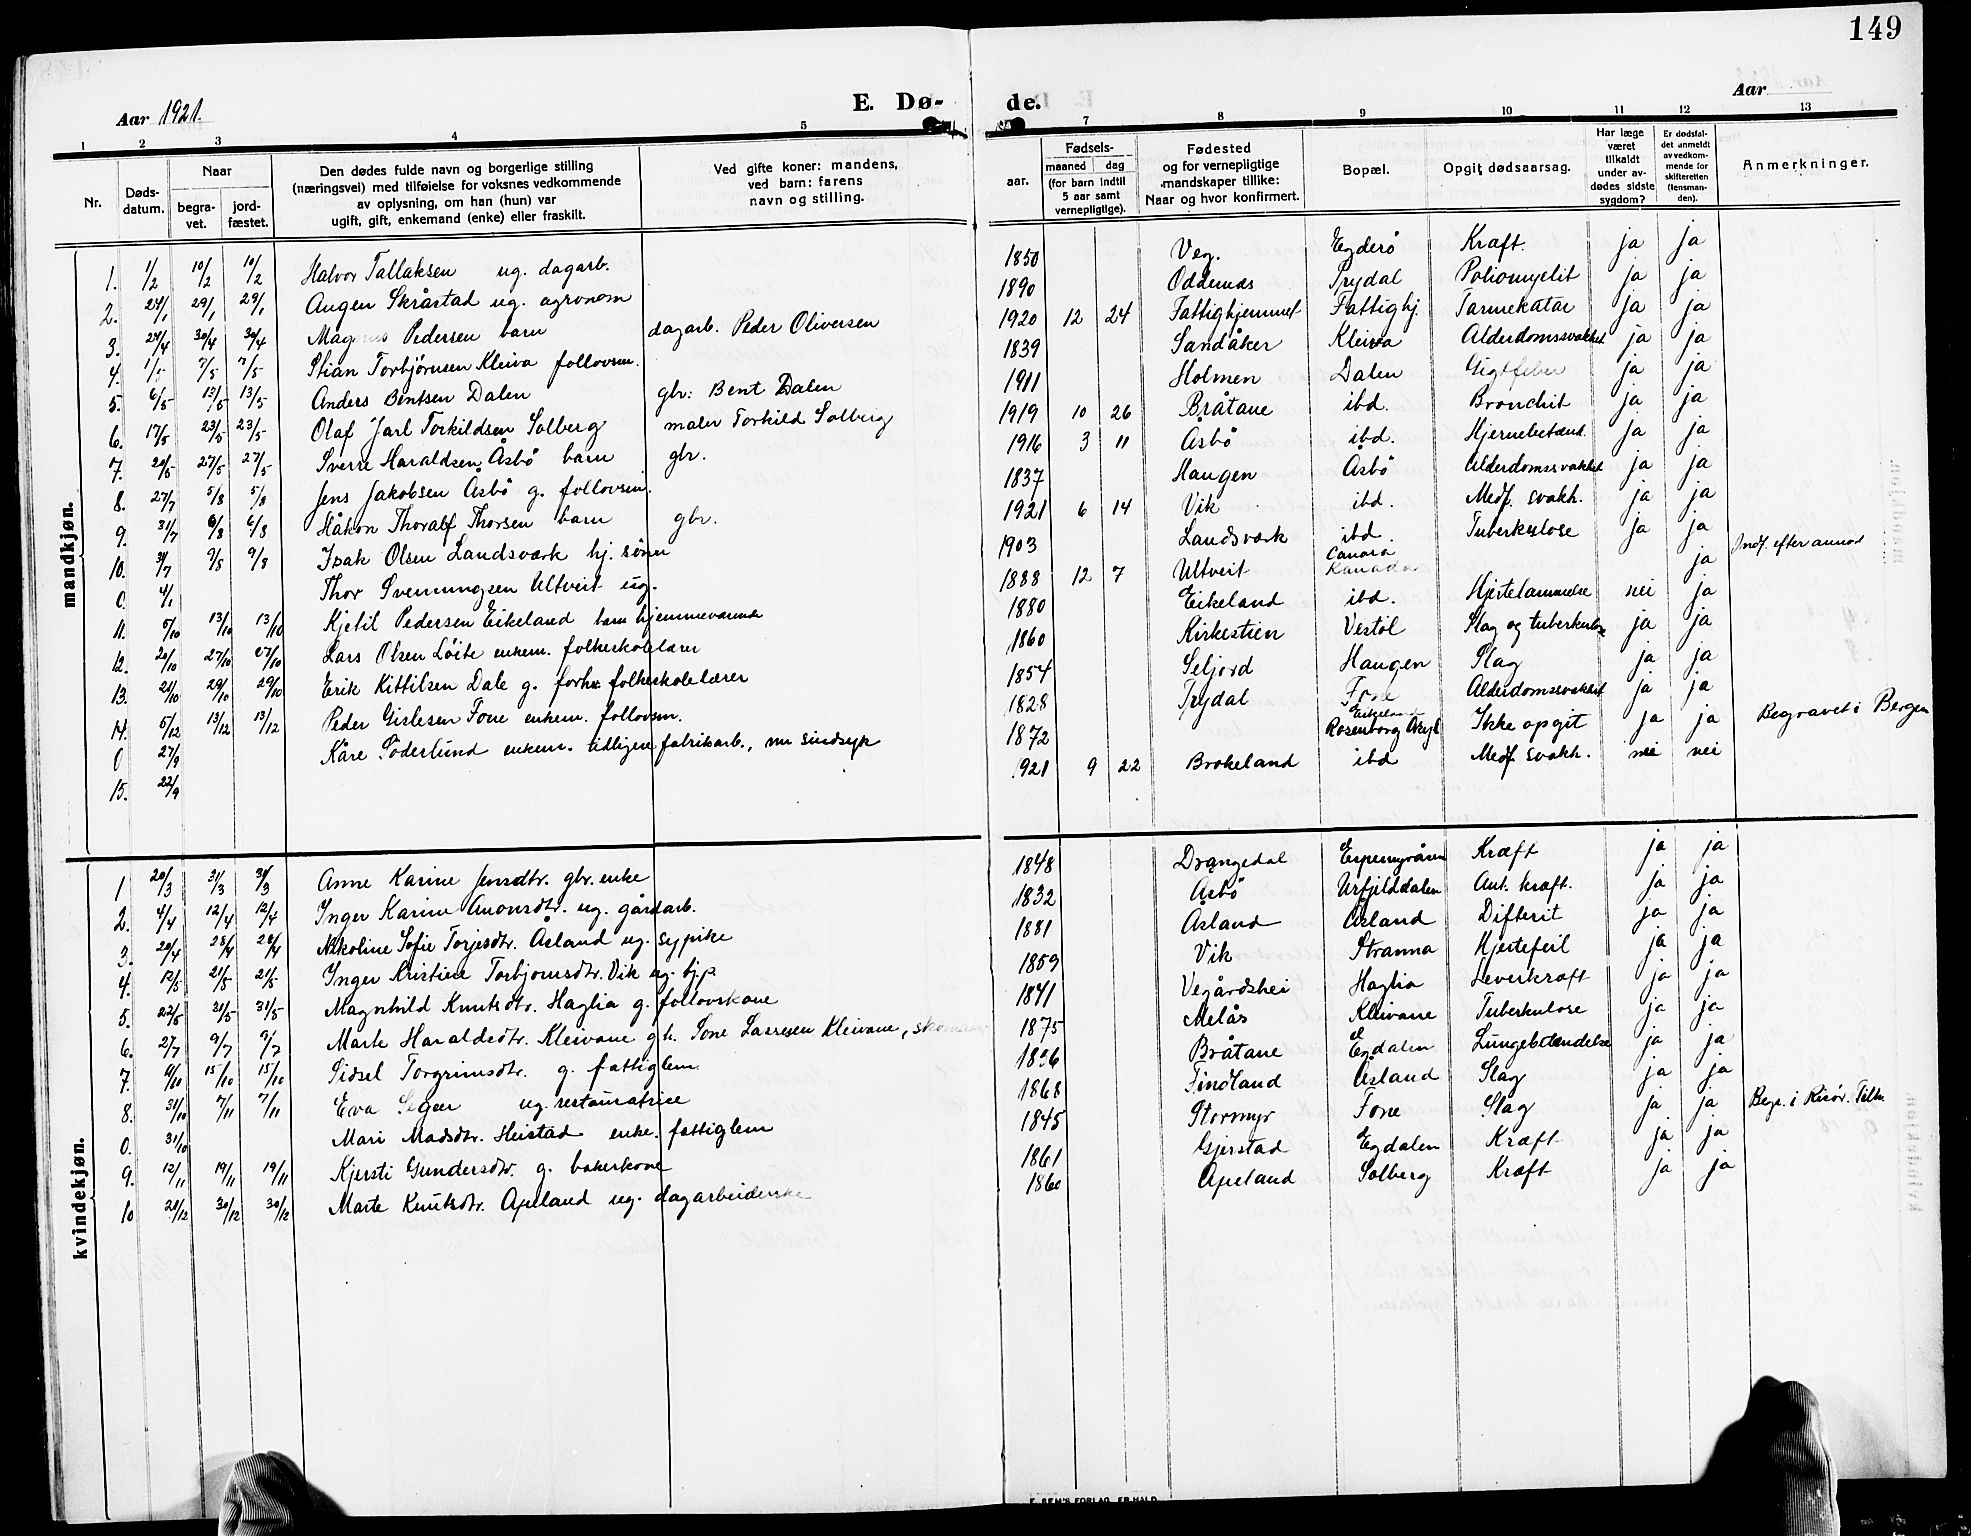 149
Aar 1921.
E. Dø-
de.
Aar
1 2 3 4 5
7 8 9 10 11 12 13
Nr.
Døds-
datum.
Naar
begra-
vet.
jord-
fæstet.
Den dødes fulde navn og borgerlige stilling
(næringsvei) med tilføielse for voksnes vedkommende
av oplysning, om han (hun) var
ugift, gift, enkemand (enke) eller fraskilt.
Ved gifte koner: mandens,
ved barn: farens
navn og stilling.
aar.
Fødsels-
maaned dag
(for barn indtil
5 aar samt
vernepligtige).
Fødested
og for vernepligtige
mandskaper tillike:
Naar og hvor konfirmert.
Bopæl.
Opgit dødsaarsag.
Har læge
været
tilkaldt
under av-
dødes sidste
sygdom?
Er dødsfal-
det anmeldt
av vedkom-
mende for
skifteretten
(lensman-
den).
Anmerkninger.
mandkjøn.
1. 1/2 10/2 10/2 Halvor Tallaksen ug. dagarb. 1850 Veg. Egderø Kræft. ja ja
2. 24/1 29/1 29/1 Augen Skråstad ug. agronom 1890 Oddernes Trydal Poliomyelit ja ja
3. 24/4 30/4 30/4 Magnus Pedersen barn dagarb. Peder Oliversen 1920 12 24 Fattighjemmet Fattighj. Tarmekatar ja ja
4. 1/5 7/5 7/5 Stian Torbjørnsen Kleiva follovsm. 1839 Sandåker Kleiva Alderdomssvakhet ja ja
5. 6/5 13/5 13/5 Anders Bentsen Dalen gbr: Bent Dalen 1911 Holmen Dalen Gigtfeber ja ja
6. 17/5 23/5 23/5 Olaf Jarl Torkildsen Solberg maler Torkild Solberg 1919 10 26 Bråtane ibd. Bronchit ja ja
7. 20/5 27/5 27/5 Sverre Haraldsen Åsbö barn gbr. 1916 3 11 Åsbö ibd. Hjernebetænd. ja ja
8. 27/7 5/8 5/8 Jens Jakobsen Åsbö g. follovsm. 1837 Haugen Åsbö Alderdomssvakhet ja ja
9. 31/7 6/8 6/8 Håkon Thoralf Thorsen barn gbr. 1921 6 14 Vik ibd. Medf. svakh. ja ja
10. 31/7 9/8 9/8 Isak Olsen Landsværk hj. sönn 1903 Landsværk ibd. Tuberkulose ja ja
0. 4/1 Thor Svenningsen Ultveit ug. 1888 12 7 Ultveit Canada Kanada ja Indf. efter
11. 5/10 13/10 13/10 Kjetil Pedersen Eikeland hjemmeværende 1880 Eikeland ibd. Hjertelammelse nei ja
12. 20/10 27/10 27/10 Lars Olsen Löite enkem. folkeskolelærer 1860 Kirkestien Vestöl Slag og tuberkulose ja ja
13. 21/10 29/10 29/10 Erik Kittilsen Dale g. forh. folkeskolelærer 1854 Seljord Haugen Slag ja ja
14. 5/12 13/12 13/12 Peder Gislesen Fone enkem. follovsm. 1828 Trydal Fone Alderdomssvakhet ja ja
0 27/9 Kåre Söderlund enkem. tidligere fabrikarb., nu sindsyk 1872 Eikeland Rosenborg Asyl Ikke opgit ja ja Begravet i Bergen
15. 22/9 1921 9 22 Brokeland ibd Medf. svakh. nei nei
kvindekjøn.
1 20/3 31/3 31/3 Anne Karine Jensdtr. gbr. enke 1848 Drangedal Espemyråsen Kræft ja ja
2. 4/4 12/4 12/4 Inger Karine Anonsdtr. ug. gårdarb. 1832 Åsbö Urfjelddalen Ant. kræft. ja ja
3. 20/4 28/4 28/4 Nikoline Sofie Torjesdtr. Åsland ug. sypike 1881 Åsland Åsland Difterit ja ja
4. 12/5 21/5 21/5 Inger Kristine Torbjornsdtr. Vik ug. hjp 1859 Vik Stranna Hjertefeil ja ja
5. 22/5 31/5 31/5 Magnhild Knutsdtr. Haglia g. follovskone 1841 Vegårdshei Haglia Leverkræft ja ja
6. 27/7 9/7 9/7 Marte Haraldsdtr. Kleivane g.h. Sone Larresen Kleivane, 1875 Melås Kleivane Tuberkulose ja ja
7. 9/10 15/10 15/10 Sidsel Torgrimsdtr. g. fattiglem 1836 Bråtane Egdalen Lungebetændelse ja ja
8. 31/10 7/11 7/11 Eva ug. restauratrice 1868 Findland Åsland Slag ja ja
0. 31/10 Mari Madsdtr. Heistad enke. fattiglem 1845 Stormyr Fone Slag ja ja Begr. i Risør.
9. 12/11 19/11 19/11 Kjersti Gundersdtr. g. bakerkone 1861 Gjerstad Egdalen Kræft ja ja
10 20/12 30/12 30/12 Marte Knutsdtr. Apeland ug. dagarbeiderske 1860 Apeland Solberg Kræft ja ja